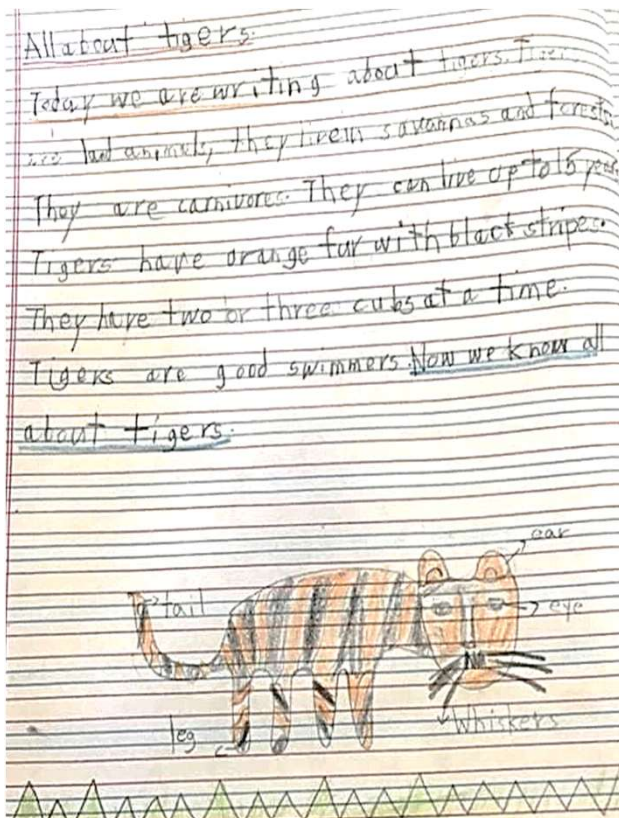 All about tigers.
Today we are writing about tigers. Tigers
are land animals, they live in savannas and forests.
They are carnivores. They can live up to 15 years.
Tigers have orange fur with black stripes.
They have two or three cubs at a time.
Tigers are good swimmers. Now we know all
about tigers.
ear
tail
eye
leg
Whiskers